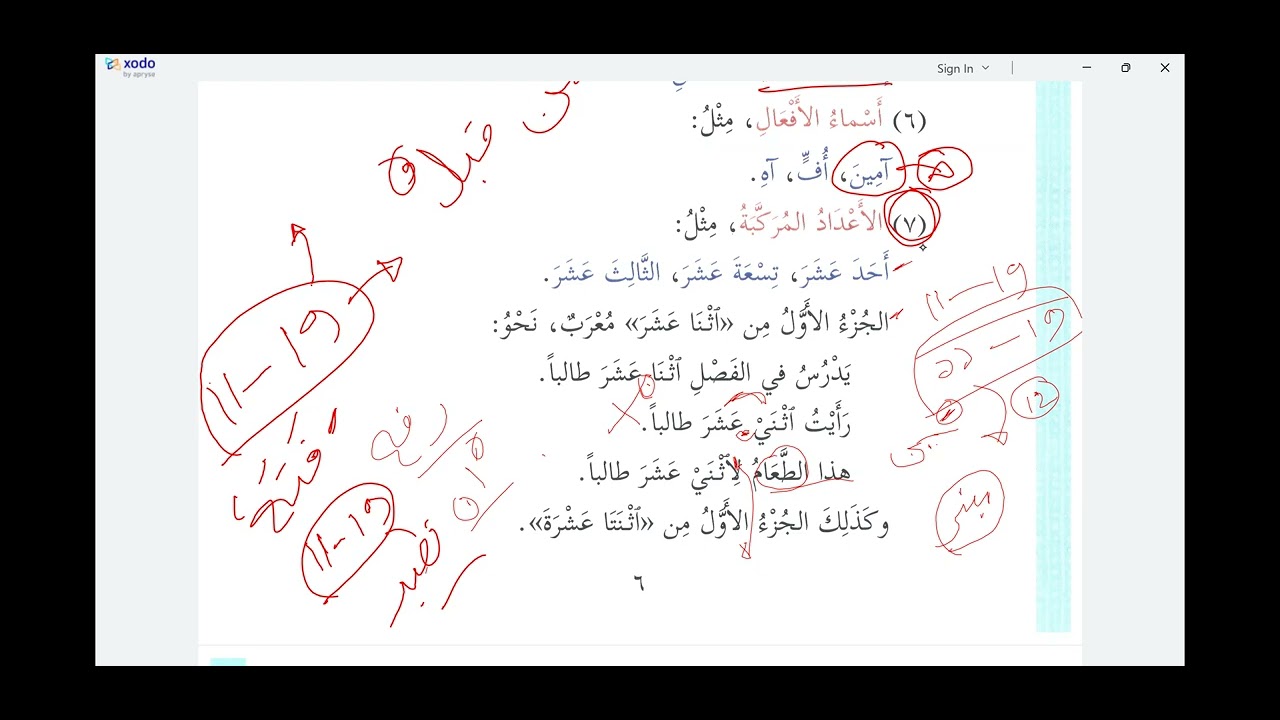 xodo
by apryse
Sign In
(٦) أَسْماءُ الأَفْعَالِ، مِثْلُ:
آمِينَ، أُفٍّ، آهِ.
(٧) الأَعْدَادُ المُرَكَّبَةُ، مِثْلُ:
أَحَدَ عَشَرَ، تِسْعَةَ عَشَرَ، الثَّالِثَ عَشَرَ.
الجُزْءُ الأَوَّلُ مِن «ٱثْنَا عَشَرَ» مُعْرَبٌ، نَحْوُ:
يَدْرُسُ في الفَصْلِ ٱثْنَا عَشَرَ طالباً.
رَأَيْتُ ٱثْنَيْ عَشَرَ طالباً.
هذا الطَّعَامُ لِٱثْنَيْ عَشَرَ طالباً.
وكَذَلِكَ الجُزْءُ الأَوَّلُ مِن «ٱثْنَتَا عَشْرَةَ».
٦
11-19
11-19
11-19
12
مبنی